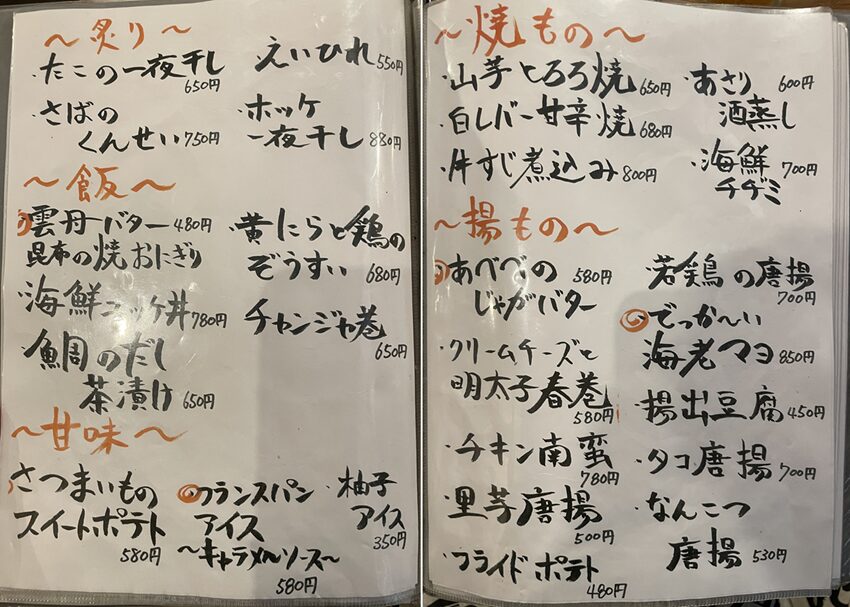 ～炙り～
・たこの一夜干し
650円
えいひれ 550円
・さばの
くんせい 750円
・ホッケ
一夜干し 880円
～飯～
雲丹バター 480円
昆布の焼おにぎり
・黄にらと鶏の
ぞうすい 680円
海鮮ユッケ丼 780円
チャンジャ巻
650円
・鯛のだし
茶漬け 650円
～甘味～
さつまいもの
スイートポテト
580円
フランスパン
アイス
～キャラメルソース～
580円
・柚子
アイス
350円
～焼もの～
・山芋とろろ焼 650円
・あさり 600円
酒蒸し
・白レバー甘辛焼 680円
・牛すじ煮込み 800円
・海鮮 700円
チヂミ
～揚もの～
あべべの 580円
じゃがバター
・若鶏の唐揚
700円
でっか～い
海老マヨ 850円
・クリームチーズと
明太子春巻
580円
・揚出豆腐 450円
・チキン南蛮
780円
・タコ唐揚 700円
・里芋唐揚
500円
・なんこつ
唐揚 530円
・フライドポテト
480円